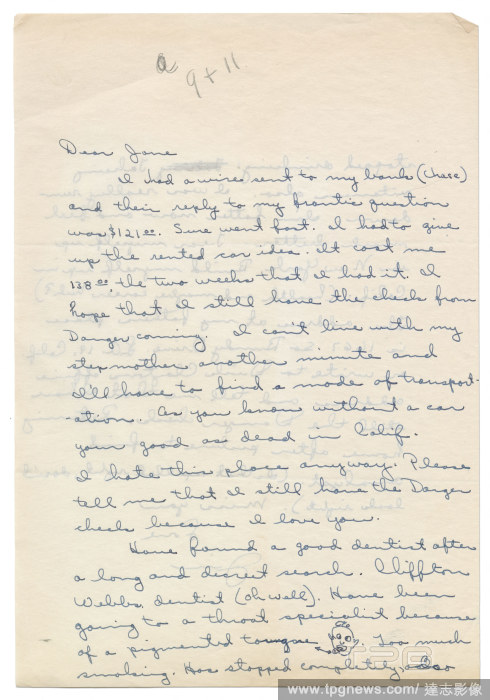 a 9 + 11
Dear Jane
I had a wire sent to my bank (there)
and their reply to my frantic question
was $121.00. Sure went fast. I had to give
up the rented car idea. It cost me
138.00 the two weeks that I had it. I
hope that I still have the check from
Danger coming. I can't live with my
step mother another minute and
I'll have to find a mode of transport-
-ation. As you know without a car
your good as dead in Calif.
I hate this place anyway. Please
tell me that I still have the Danger
check because I love you.
Have found a good dentist after
a long and discreet search. Cliffton
Webbs dentist (oh well). Have been
going to a throat specialist because
of a pigmented tongue Too much
smoking. Has stopped completly, also
tpg
www.tpgnews.com / 達志影像